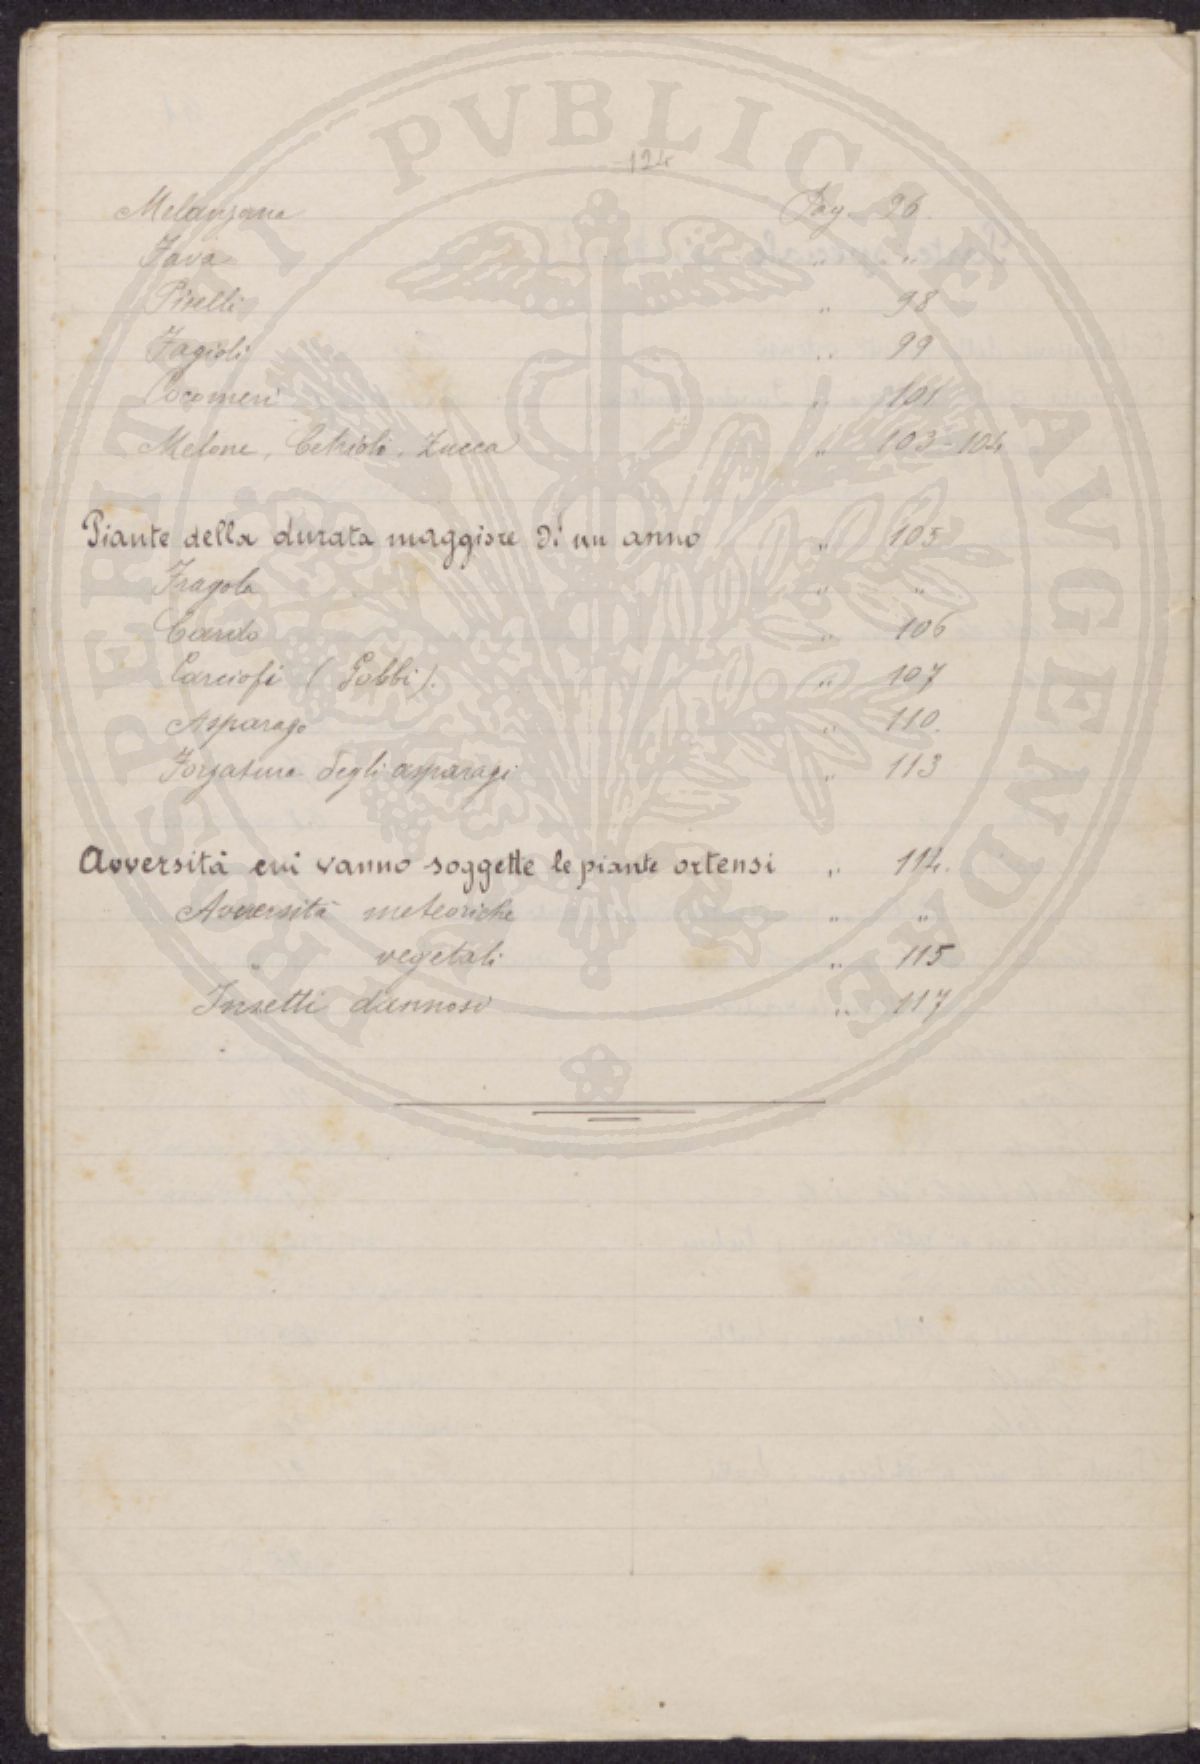 124
Melanzana Pag. 96
Fava " "
Piselli " 98
Fagioli " 99
Cocomeri " 101
Melone, Cetrioli, Zucca " 103-104
Piante della durata maggiore di un anno " 105
Fragola " "
Cardo " 106
Carciofi (Gobbi). " 107
Asparago " 110.
Forzatura degli asparagi " 113
Avversità cui vanno soggette le piante ortensi " 114.
Avversità meteoriche " "
" vegetali " 115
Insetti dannosi " 117
PROSPERITATI PVBLICAE AVGENDAE